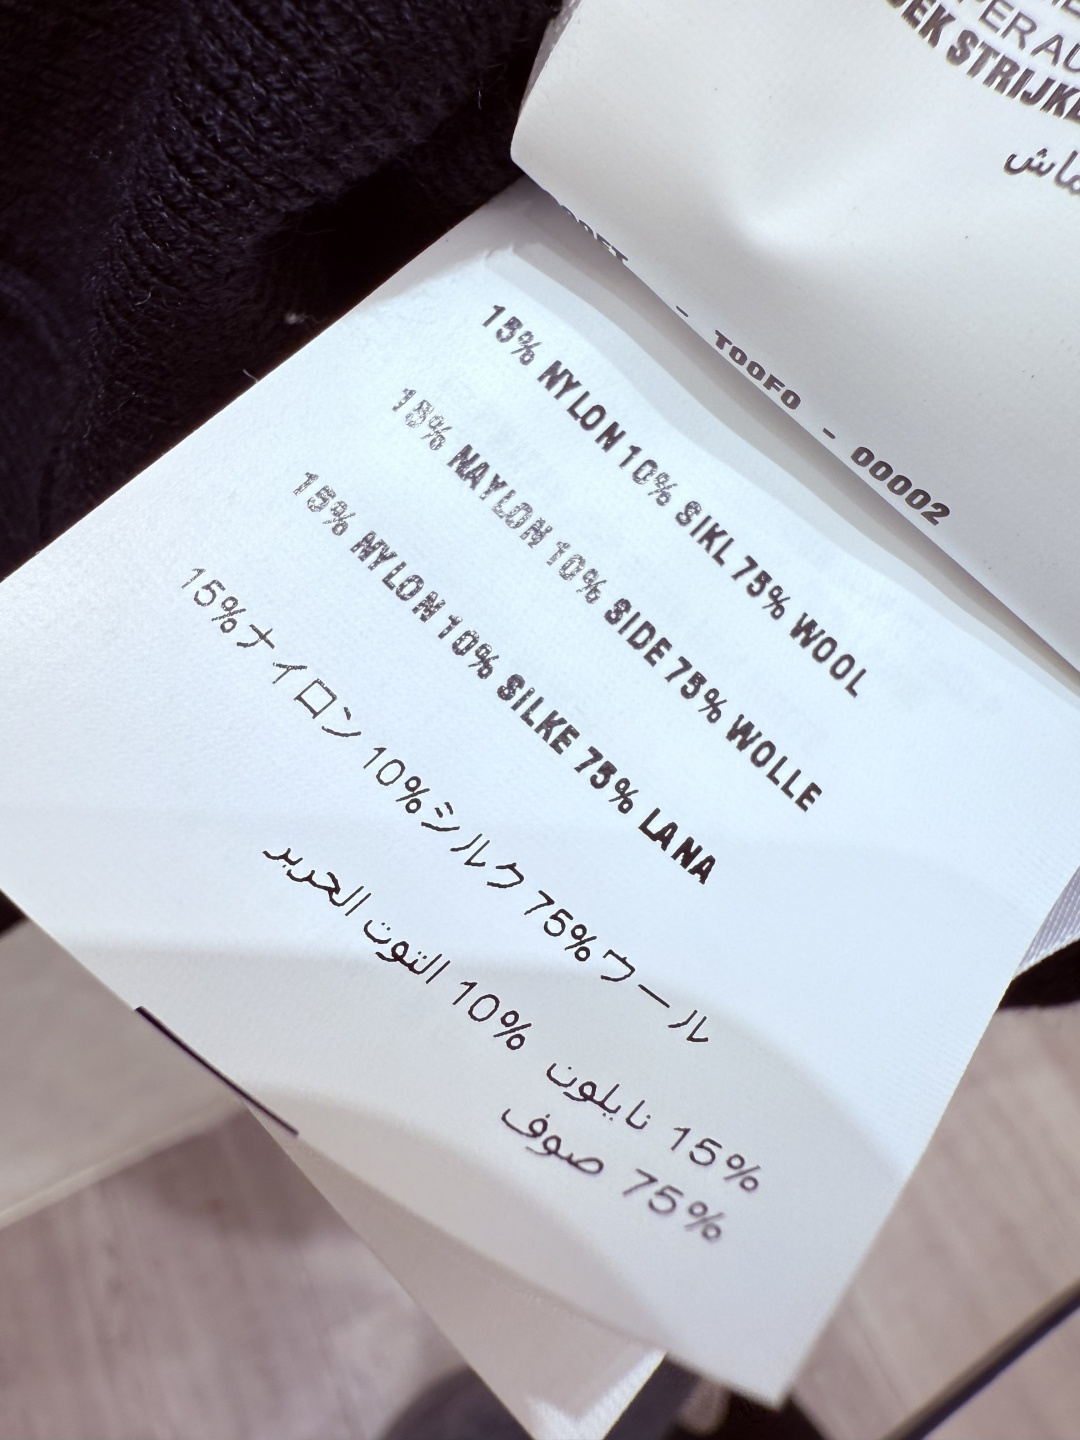 PER AU
EK STRIJKE
ماش
- T00F0 - 00002
15% NYLON 10% SIKL 75% WOOL
15% NAYLON 10% SIDE 75% WOLLE
15% NYLON 10% SILKE 75% LANA
15%ナイロン 10%シルク 75%ウール
15% نايلون 10% التوت الحرير
75% صوف